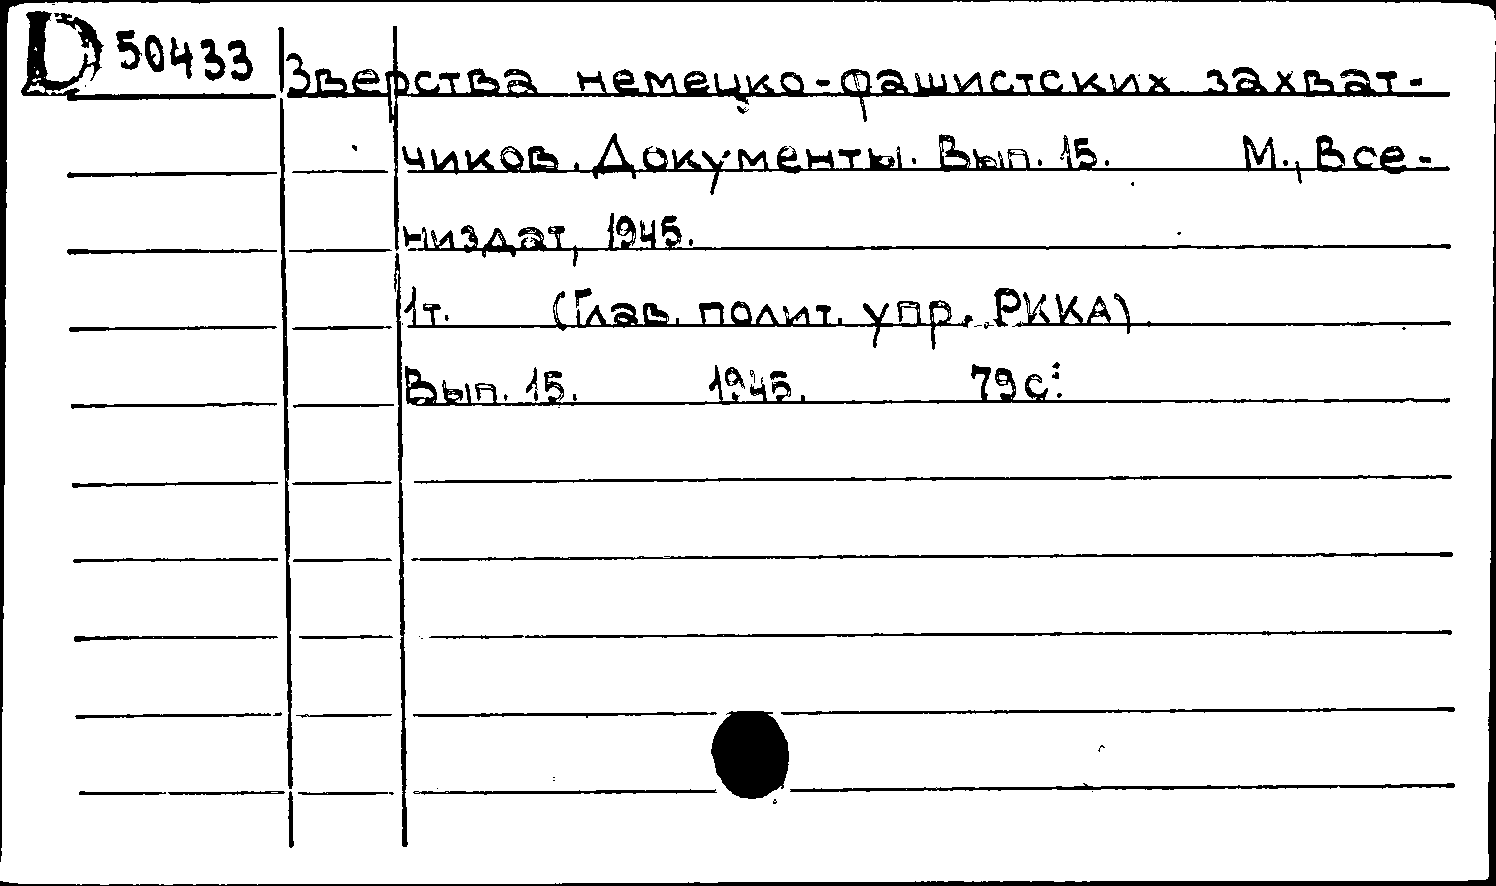 D 50433 Зверства немецко-фашистских захват-
чиков. Документы. Вып. 15. М., Все-
низдат, 1945.
1т. (Глав. полит. упр. РККА)
Вып. 15. 1945. 79с.